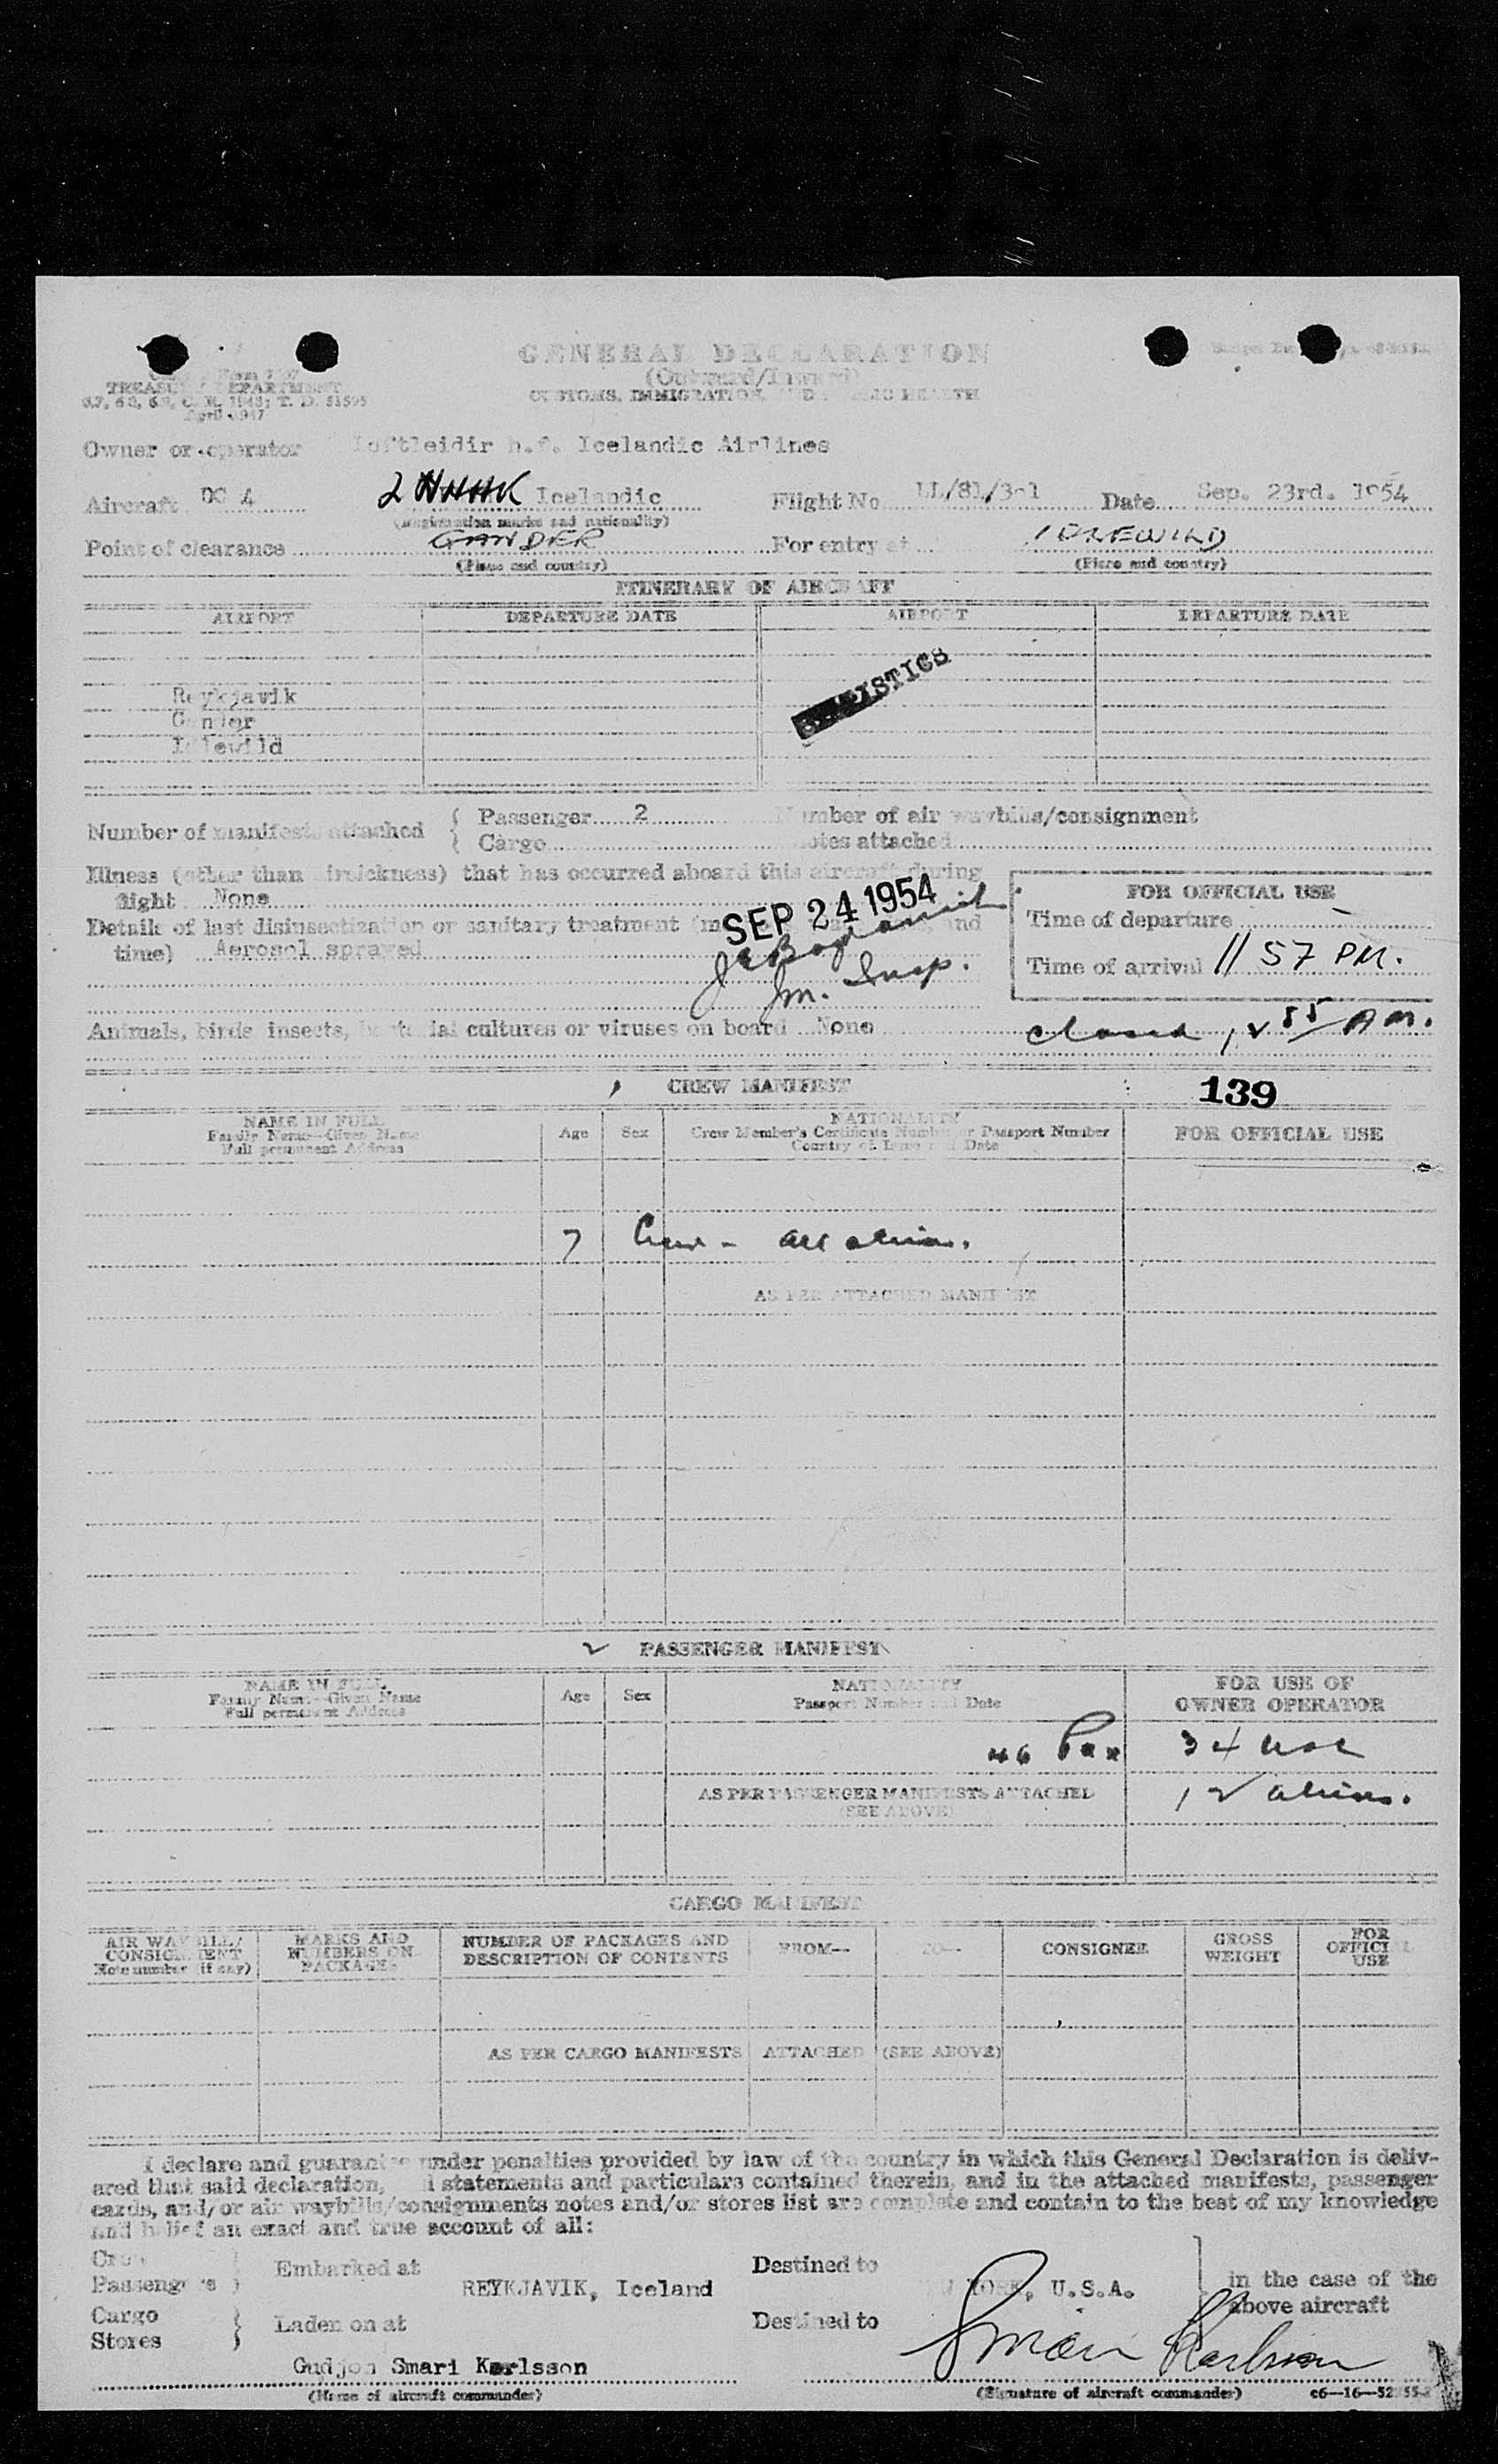 GENERAL DECLARATION
(Outward/Inward)
CUSTOMS, IMMIGRATION, AND PUBLIC HEALTH
TREASURY DEPARTMENT
April 1947
Owner or operator Loftleidir h.f. Icelandic Airlines
Aircraft DC 4 Icelandic Flight No. LL/81/3-1 Date Sep. 23rd. 1954
(Registration marks and nationality)
Point of clearance GANDER For entry at IDLEWILD
(Place and country) (Place and country)
ITINERARY OF AIRCRAFT
AIRPORT DEPARTURE DATE AIRPORT DEPARTURE DATE
STATISTICS
Reykjavik
Gander
Idlewild
Number of manifests attached { Passenger 2 Number of air waybills/consignment
Cargo notes attached
Illness (other than airsickness) that has occurred aboard this aircraft during
flight None
FOR OFFICIAL USE
SEP 24 1954
Details of last disinsectization or sanitary treatment and
time) Aerosol sprayed
Time of departure –
Time of arrival 11 57 PM.
Im. Insp.
Animals, birds insects, bacterial cultures or viruses on board None
closed 12 55 AM.
CREW MANIFEST
139
NAME IN FULL
Family Name—Given Name
Full permanent Address
Age Sex
NATIONALITY
Crew Member's Certificate Number or Passport Number
Country of Issue and Date
FOR OFFICIAL USE
7 Crew - all aliens.
AS PER ATTACHED MANIFEST
2 PASSENGER MANIFEST
NAME IN FULL
Family Name—Given Name
Full permanent Address
Age Sex
NATIONALITY
Passport Number and Date
FOR USE OF
OWNER OPERATOR
46 Pax 34 USC
AS PER PASSENGER MANIFESTS ATTACHED 12 aliens.
(SEE ABOVE)
CARGO MANIFEST
AIR WAYBILL/
CONSIGNMENT
Note number (if any)
MARKS AND
NUMBERS ON
PACKAGES
NUMBER OF PACKAGES AND
DESCRIPTION OF CONTENTS
FROM—
TO—
CONSIGNEE
GROSS
WEIGHT
FOR
OFFICIAL
USE
AS PER CARGO MANIFESTS ATTACHED (SEE ABOVE)
I declare and guarantee under penalties provided by law of the country in which this General Declaration is deliv-
ered that said declaration, statements and particulars contained therein, and in the attached manifests, passenger
cards, and/or air waybills/consignments notes and/or stores list are complete and contain to the best of my knowledge
and belief an exact and true account of all:
Crew
Passengers } Embarked at REYKJAVIK, Iceland Destined to YORK, U.S.A. in the case of the
above aircraft
Cargo
Stores } Laden on at Destined to
Gudjon Smari Karlsson Smári Karlsson
(Name of aircraft commander) (Signature of aircraft commander)